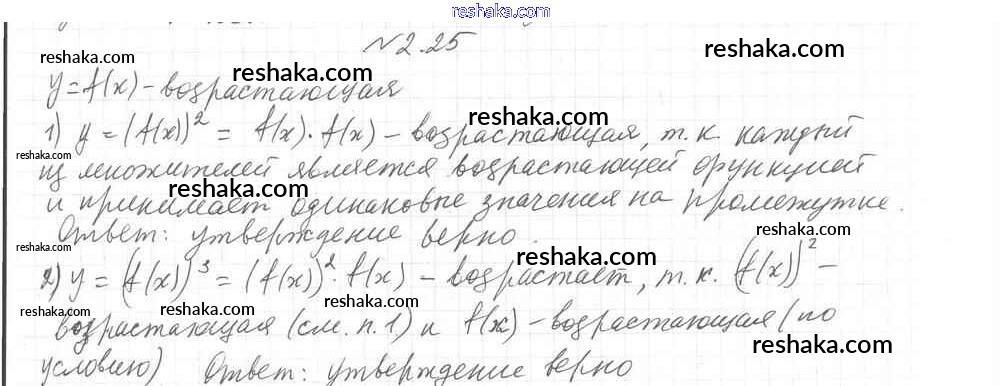 reshaka.com
№2.25
reshaka.com reshaka.com reshaka.com
y=f(x) - возрастающая
1) y=(f(x))² = f(x)·f(x) - возрастающая, т.к. каждый
reshaka.com
из множителей является возрастающей функцией
reshaka.com
и принимает одинаковые значения на промежутке.
Ответ: утверждение верно.
reshaka.com reshaka.com reshaka.com
2) y=(f(x))³ = (f(x))²·f(x) - возрастает, т.к. (f(x))² -
reshaka.com reshaka.com reshaka.com
возрастающая (см. п.1) и f(x) - возрастающая (по
reshaka.com
условию) Ответ: утверждение верно